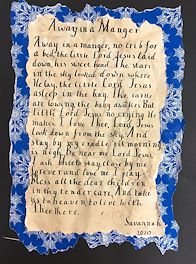 Away in a Manger
Away in a manger, no crib for
a bed, the little Lord Jesus laid
down his sweet head. The stars
in the sky looked down where
He lay, the little Lord Jesus
asleep in the hay. The cattle
are lowing the baby awakes But
little Lord Jesus no crying He
makes. I love thee, Lord Jesus
look down from the sky. And
stay by my cradle til morning
is nigh. Be near me Lord Jesus,
I ask thee to stay close by me
forever and love me I pray
Bless all the dear children
in thy tender care, And take
us to heaven to live with
Thee there.
Savannah